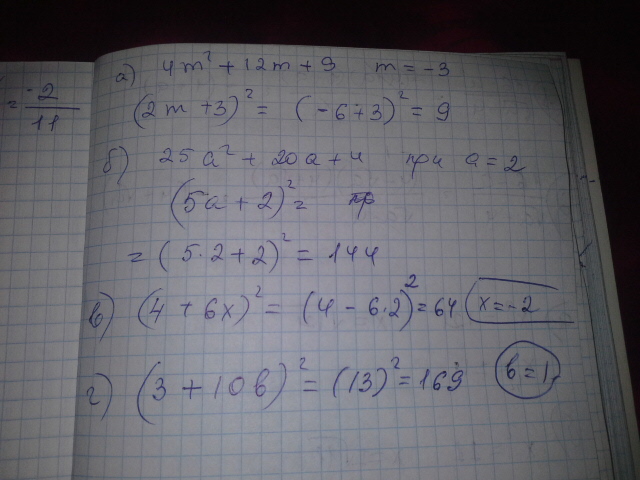 = -2/11
а) 4m² + 12m + 9 m = -3
(2m + 3)² = (-6+3)² = 9
б) 25a² + 20a + 4 при a = 2
(5a + 2)² = пр
= (5·2+2)² = 144
в) (4 + 6x)² = (4 - 6·2)² = 64 x = -2
г) (3 + 10b)² = (13)² = 169 b = 1